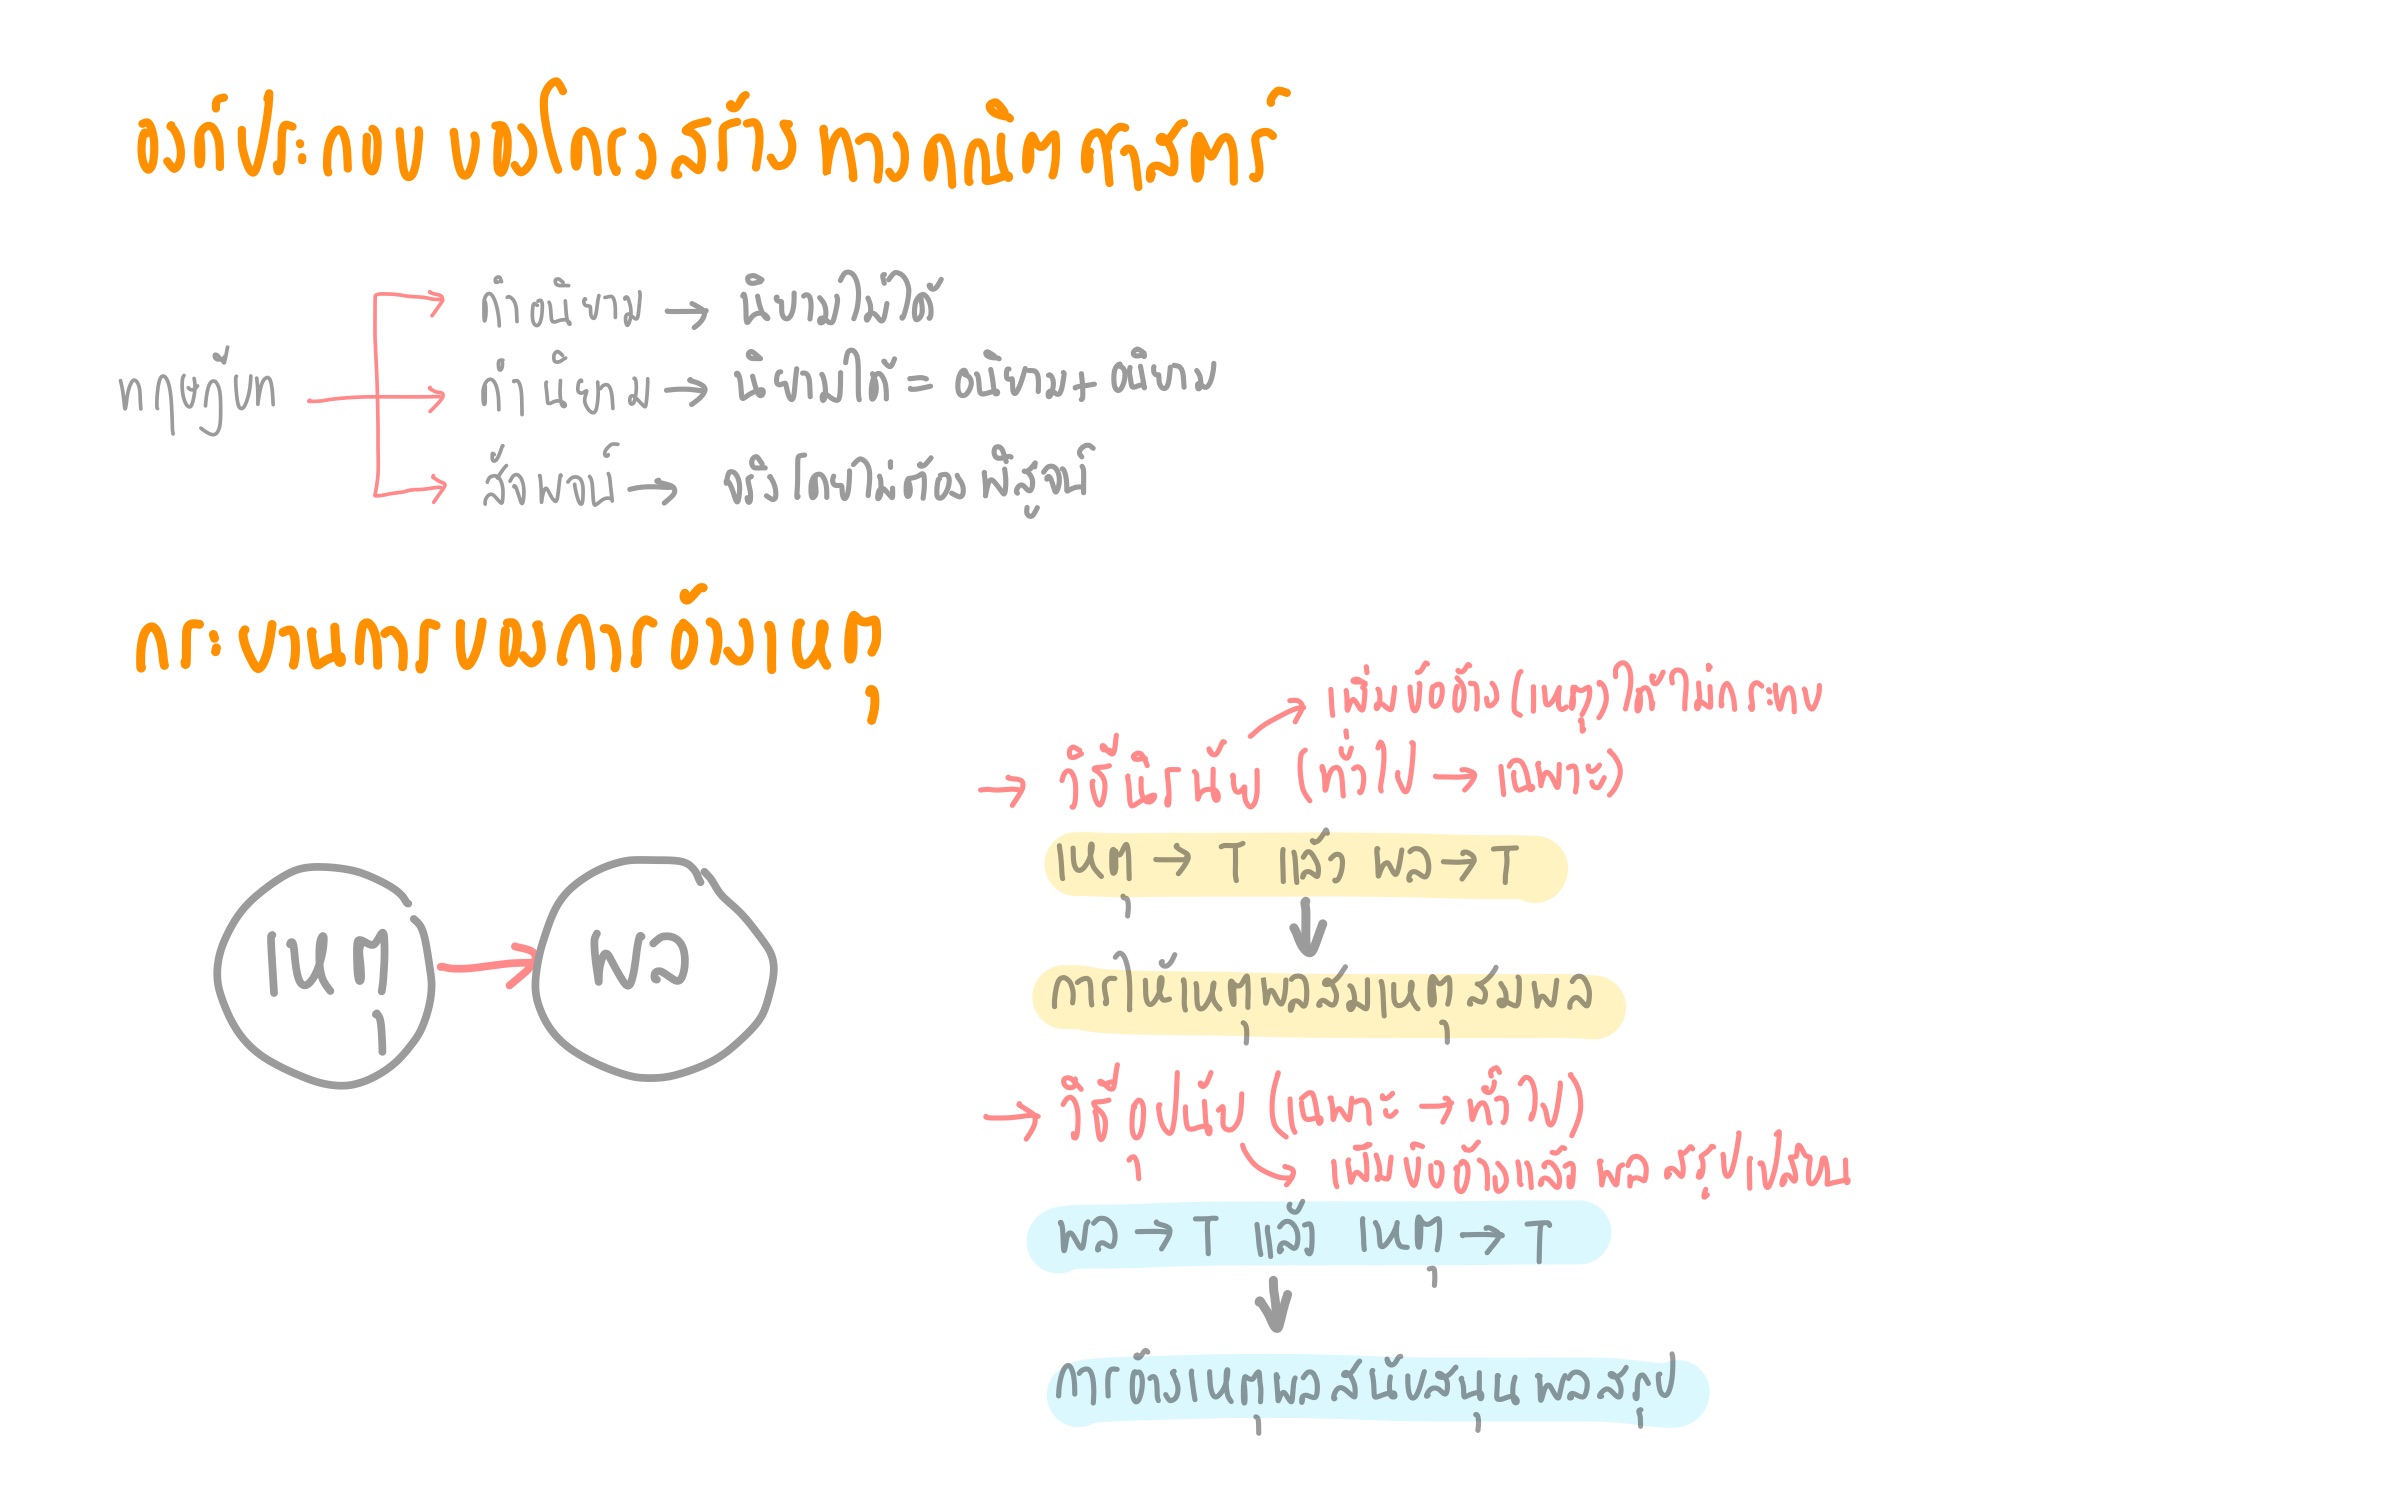 องค์ประกอบ ของโครงสร้างทางคณิตศาสตร์
ทฤษฎีบท
คำอนิยาม → นิยามไม่ได้
คำนิยาม → นิยามได้ = อนิยาม + อนิยาม
สัจพจน์ → จริงโดยไม่ต้องพิสูจน์
กระบวนการของการอ้างเหตุ
เหตุ → ผล
เพิ่มข้ออ้าง (เหตุ) ให้ไม่กระทบ
→ วิธีนิรนัย (ทั่วไป → เฉพาะ)
เหตุ → T แล้ว ผล → T
การให้เหตุผลสมเหตุสมผล
→ วิธีอุปนัย (เฉพาะ → ทั่วไป)
เพิ่มข้ออ้างแล้ว ผลสรุปเปลี่ยน
ผล → T แล้ว เหตุ → T
การอ้างเหตุผลสนับสนุนผลสรุป